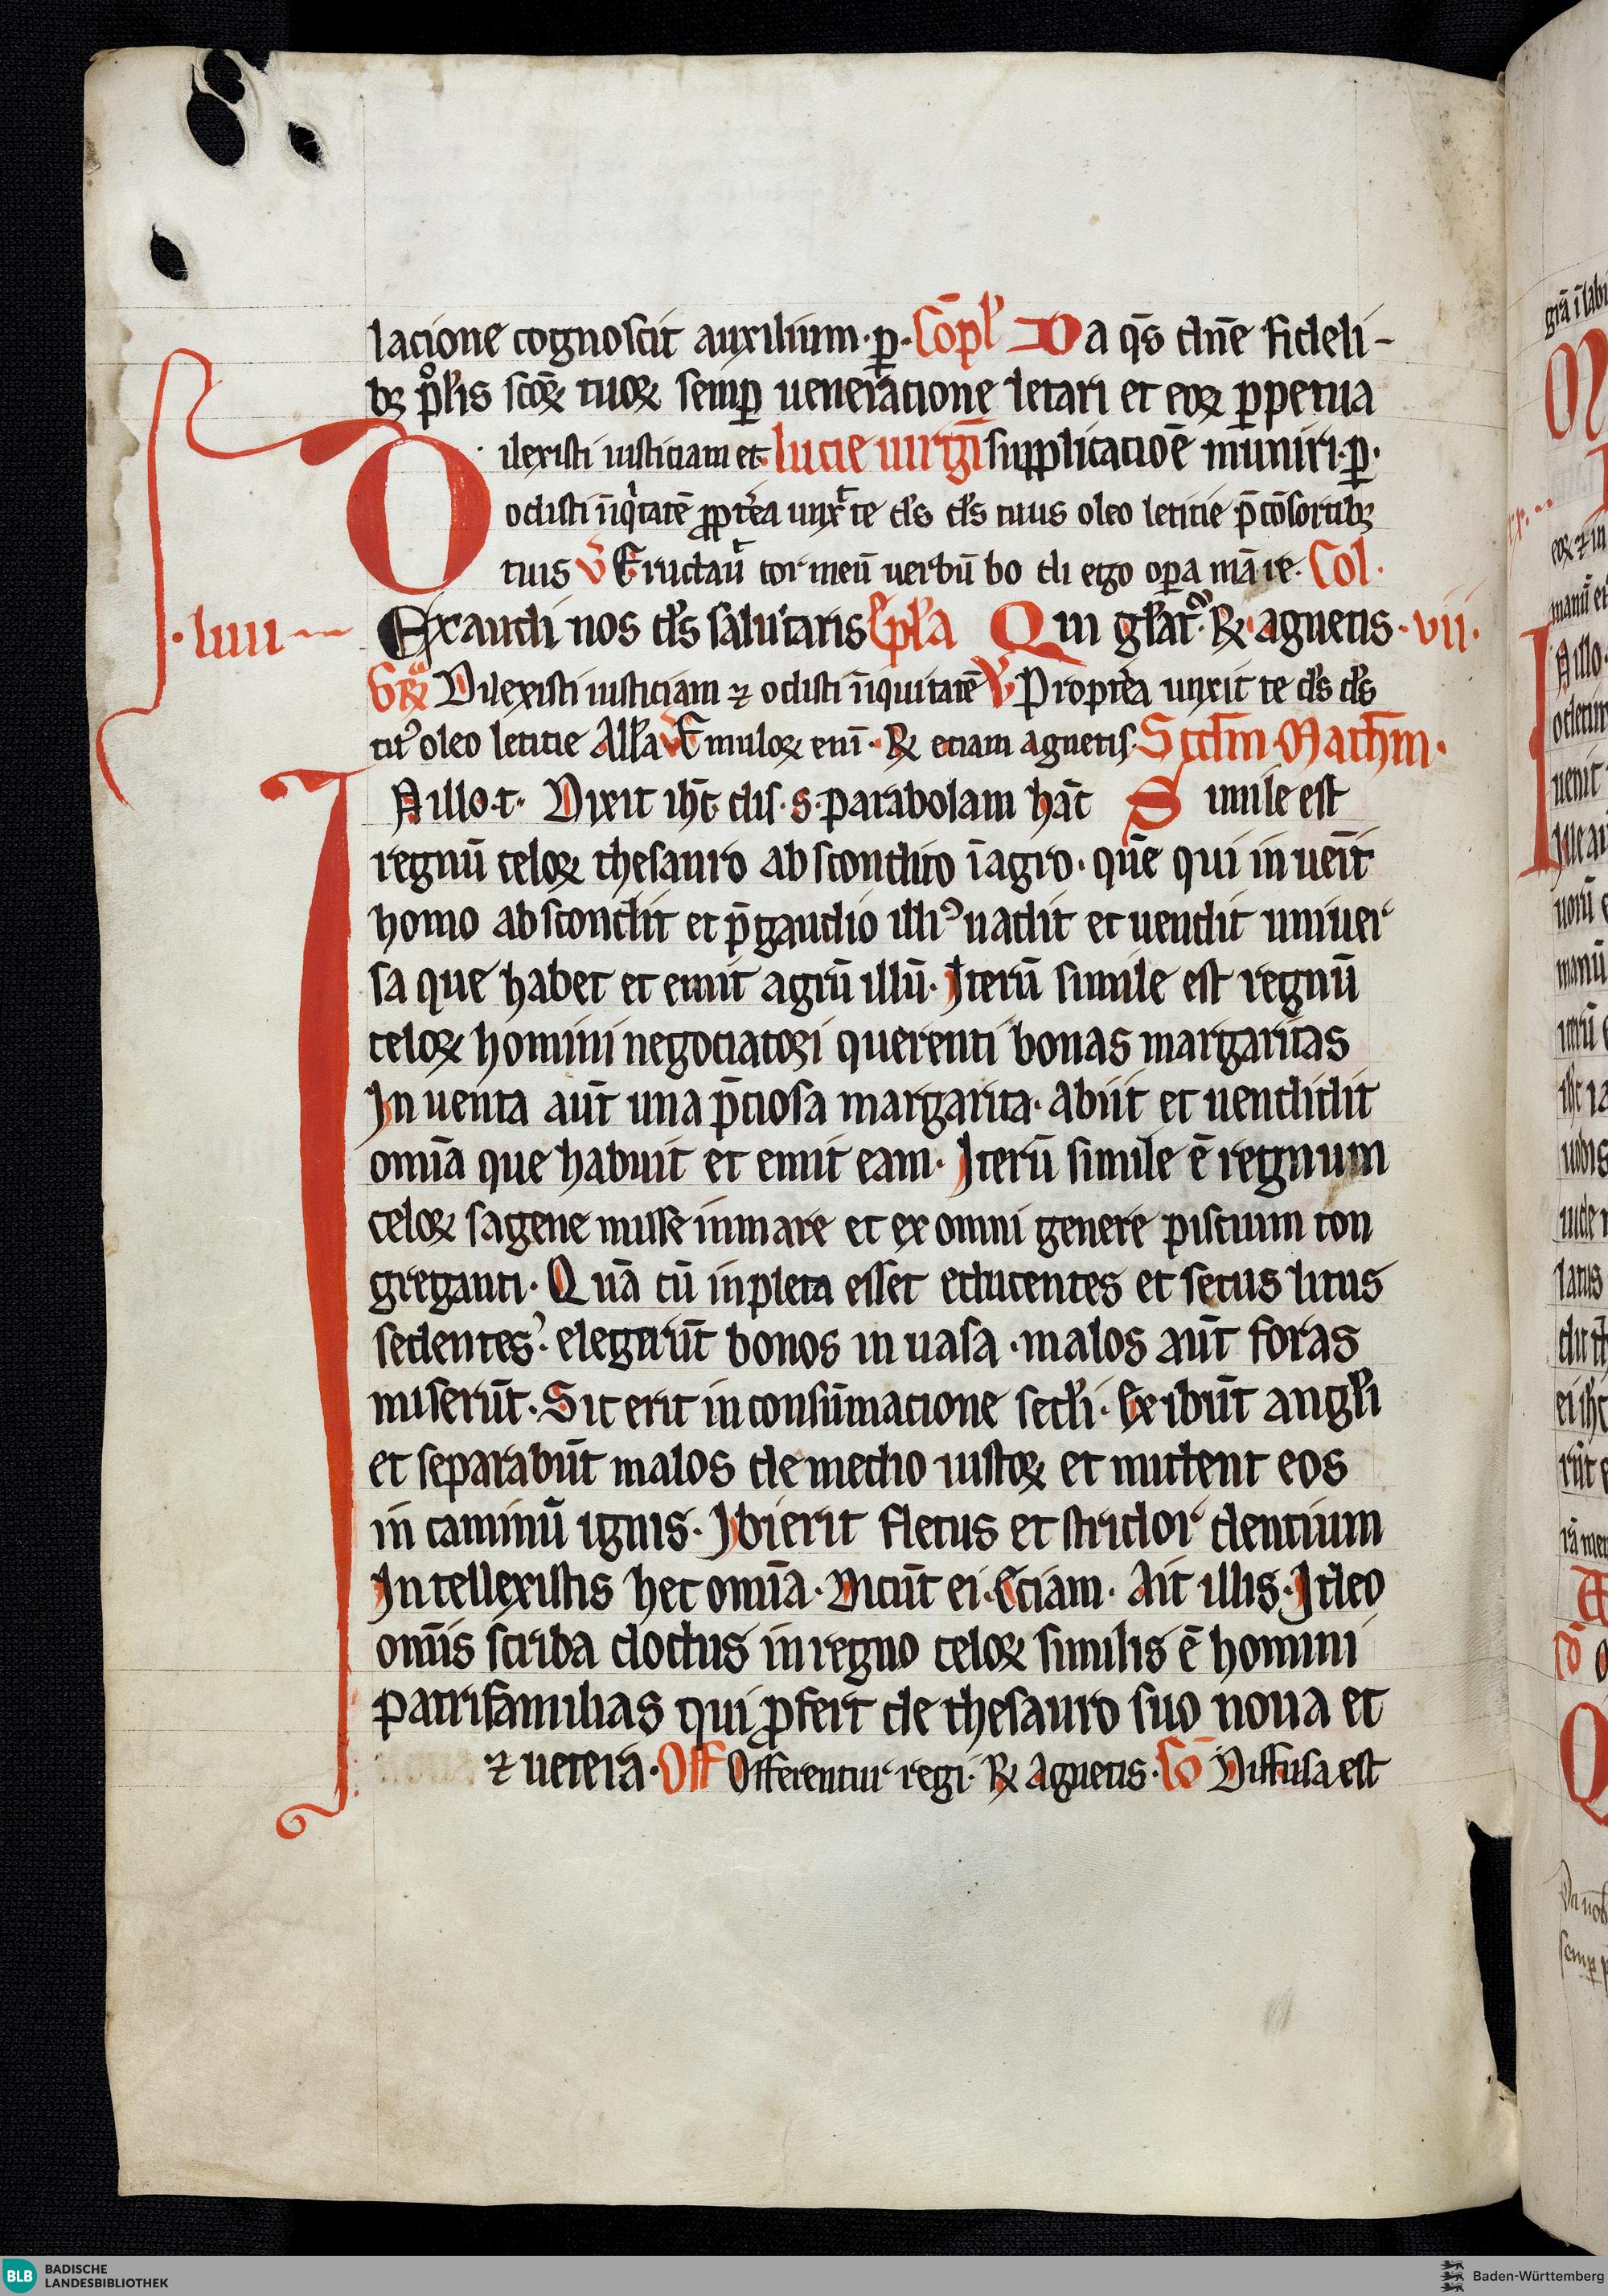 lacione cognoscit auxilium · p̱ · Cōpl' Da q̄s dn̄e fideli-
bꝫ pͦlis scōꝝ tuoꝝ semꝑ ueneracione letari et eoꝝ ꝑpetua
Dilexisti iusticiam et lucie uirgī supplicacioē muniri · ꝑ ·
odisti īiqͥtatē ꝓpt'ea unx̄ te d's d's tuus oleo leticie p̄ cōsortibꝫ
tuis V̄ Eructaū cor meū uerbū bo di ego oꝑa mā re · Col ·
· liiii Exaudi nos d's salutaris Ep̄l'a Qui gl'at̄ · ℞ agnetis · vii ·
Gͬ Dilexisti iusticiam ⁊ odisti īiquitatē V̄ Propt'ea unxit te d's d's
tuꝰ oleo leticie All'a V̄ Emuloꝝ eni · ℞ etiam agnetis · Scdm̄ · Math̄m ·
In illo · t · Dixit ih̄c dis · s · parabolam hāc Simile est
regnū celoꝝ thesauro abscondito ī agro · quē qui in uēit
homo abscondit et p̄ gaudio illiꝰ uadit et uendit uniuer
sa que habet et emit agrū illū · Iterū simile est regnū
celoꝝ homini negociatori querenti bonas margaritas
In uenta aūt una p̄ciosa margarita · abiit et uendidit
omīa que habuit et emit eam · Iterū simile ē regnum
celoꝝ sagene misse in mare et ex omni genere piscium con
greganti · Quā cū inpleta esset educentes et secus litus
sedentes · elegerūt bonos in uasa · malos aūt foras
miserūt · Sic erit in consūmacione secl'i · Exibūt angl'i
et separabūt malos de medio iustoꝝ et mittent eos
in caminū ignis · Ibi erit fletus et stridor dentium
Intellexistis hec omīa · Dicūt ei · Eciam · Ait illis · Ideo
omīs scriba doctus in regno celoꝝ similis ē homini
patrifamilias qui ꝓfert de thesauro suo noua et
⁊ uetera · Off Offerentur regi · ℞ Agnetis · Cō Diffusa est
BLB BADISCHE
LANDESBIBLIOTHEK
Baden-Württemberg